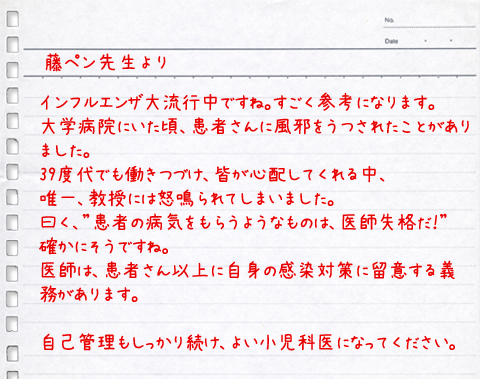 No.
Date
藤ペン先生より
インフルエンザ大流行中ですね。すごく参考になります。
大学病院にいた頃、患者さんに風邪をうつされたことがあり
ました。
39度代でも働きつづけ、皆が心配してくれる中、
唯一、教授には怒鳴られてしまいました。
曰く、"患者の病気をもらうようなものは、医師失格だ!"
確かにそうですね。
医師は、患者さん以上に自身の感染対策に留意する義
務があります。
自己管理もしっかり続け、よい小児科医になってください。